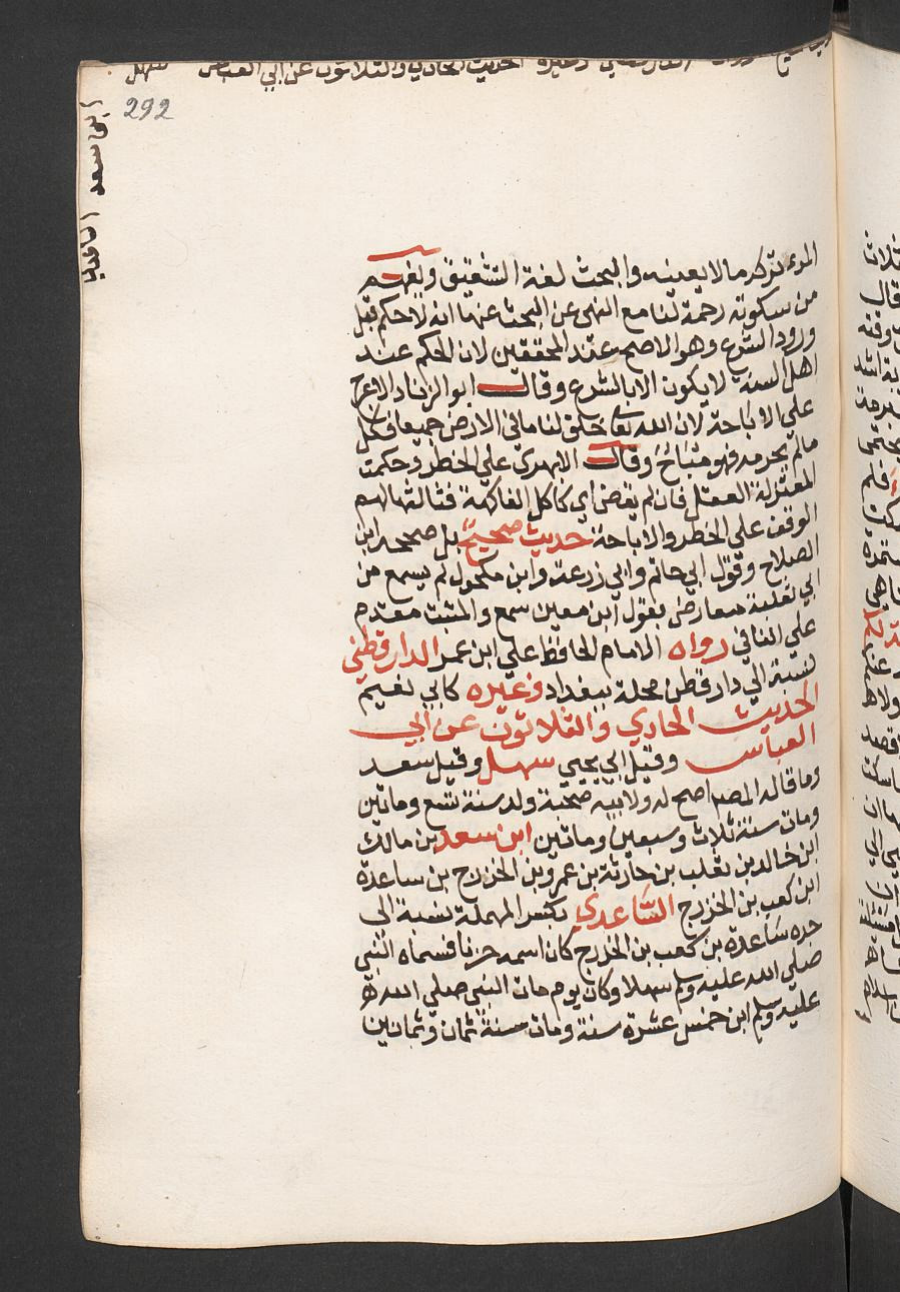 الحديث الحادي والثلاثون عن ابي العباس سهل
292
ابن سعد الساعدي
المرء تركه مالا يعنيه والبحث لغة التفتيش ويفهم
من سكوته رحمة لنا مع النهي عن البحث عنها انه لاحكم قبل
ورود الشرع وهو الاصح عند المحققين لان الحكم عند
اهل السنة لا يكون الا بالشرع وقال ابو الزناد الاعرج
على الاباحة لان الله تعا خلق لنا مافي الارض جميعا فكل
مالم يحرمه فهو مباح وقال الابهري علي الخطر وحكمت
المعتزلة العقل فان لم يقض اي كاكل الفاكهة فثالثها لهم
الوقف علي الخطر والاباحة حديث صحيح بل صححه ابن
الصلاح وقول ابي حاتم وابي زرعة وابن مكحول لم يسمع من
ابي ثعلبة معارض بقول ابن معين سمع والمثبت مقدم
علي النافي رواه الامام الحافظ علي ابن عمر الدارقطني
نسبة الي دار قطن محلة ببغداد وغيره كابي نعيم
الحديث الحادي والثلاثون عن ابي
العباس وقيل ابي يحيي سهل وقيل سعد
وما قاله المصـ اصح له ولابيه صحبة ولد سنة تسع وماتين
ومات سنة ثلاث وسبعين وماتين ابن سعد بن مالك
ابن خالد بن ثعلب بن حارثة بن عمرو بن الخزرج بن ساعدة
ابن كعب بن الخزرج الساعدي بكسر المهملة نسبة الي
جده ساعدة بن كعب بن الخزرج كان اسمه حزنا فسماه النبي
صلي الله عليه وسلم سهلا وكان يوم مات النبي صلي الله
عليه وسلم ابن خمس عشرة سنة ومات سنة ثمان وثمانين